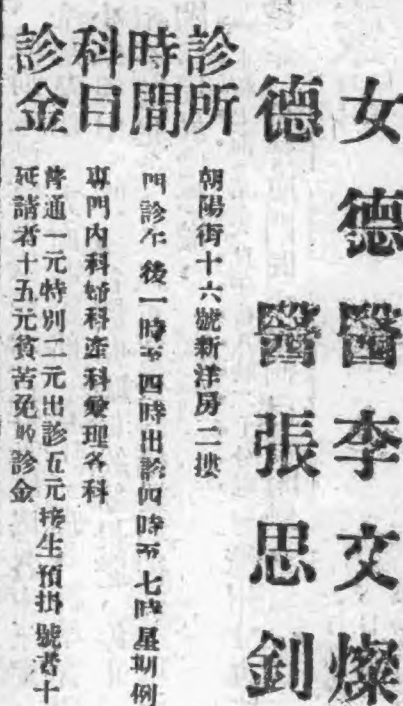 女德醫李文燦
德醫張思釗
診所 朝陽街十六號新洋房二摟
時間 門診午後一時至四時出診四時至七時星期例
科目 專門內科婦科產科兼理各科
診金 普通一元特別二元出診五元接生預掛號者十
延請者十五元貧苦免收診金